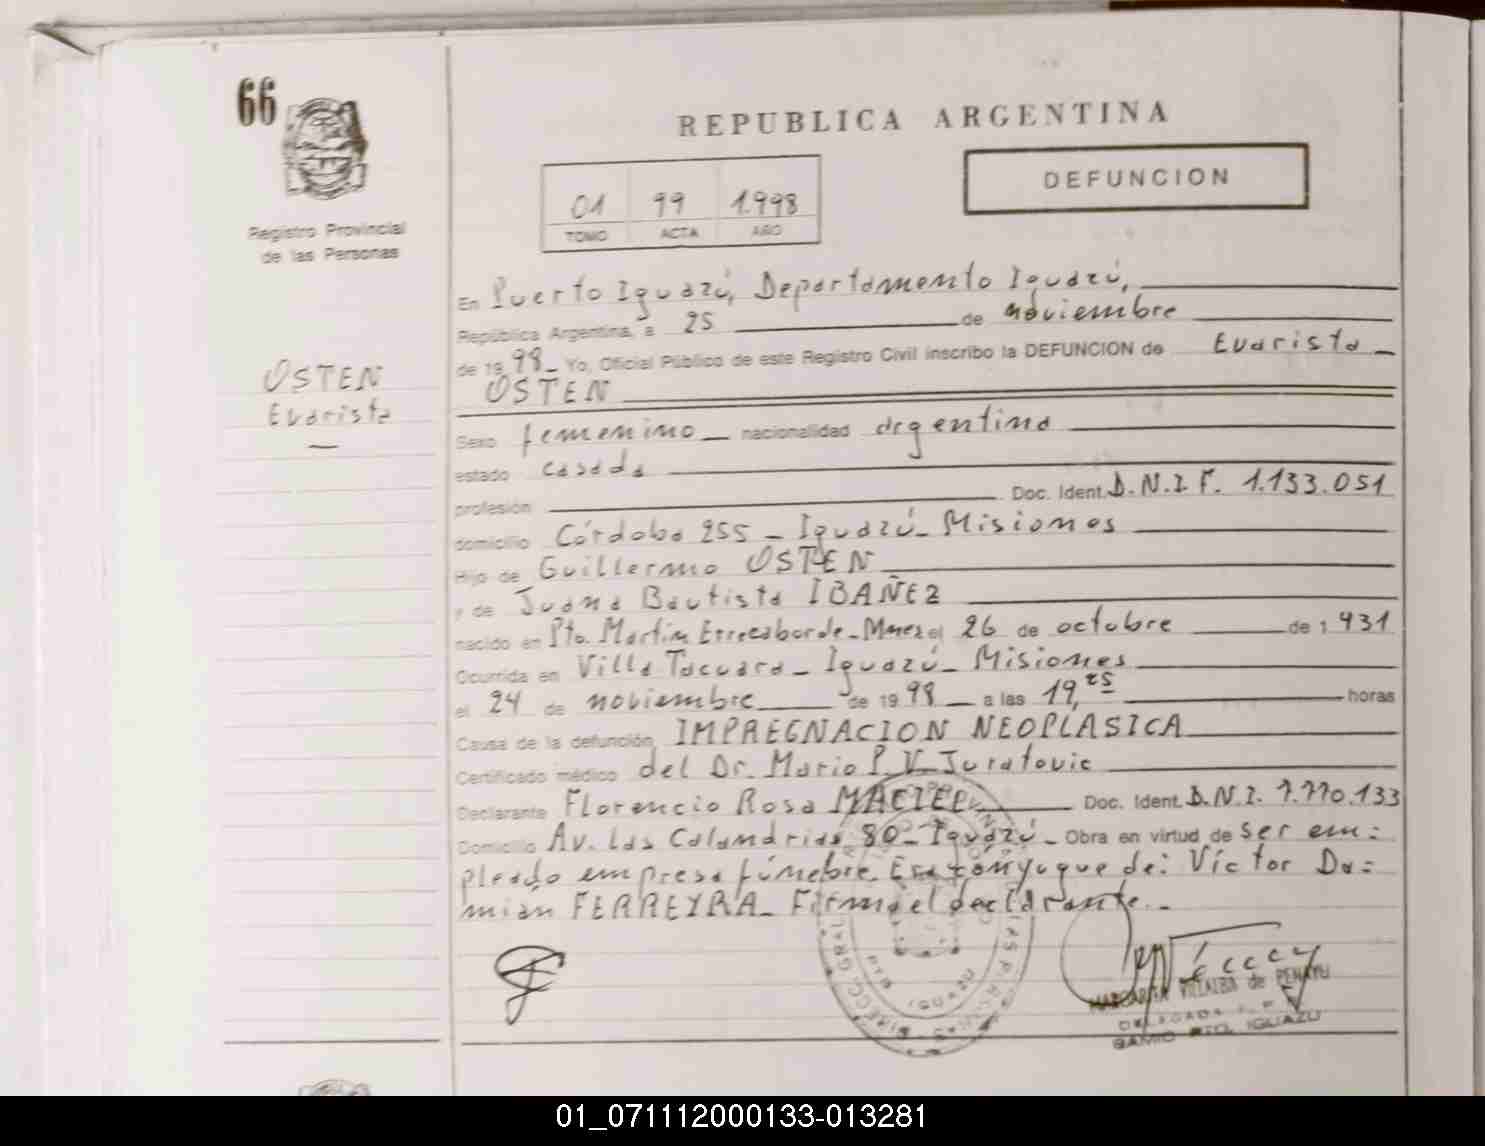 66
REPUBLICA ARGENTINA
DEFUNCION
01 99 1.998
TOMO ACTA AÑO
Registro Provincial
de las Personas
OSTEN
Evarista
En Puerto Iguazú, Departamento Iguazú,
República Argentina, a 25 de noviembre
de 19 98 Yo, Oficial Público de este Registro Civil inscribo la DEFUNCION de Evarista
OSTEN
Sexo femenino nacionalidad argentina
estado casada
profesión Doc. Ident. D.N.I F. 1.133.051
domicilio Córdoba 255 - Iguazú - Misiones
Hijo de Guillermo OSTEN
y de Juana Bautista IBAÑEZ
nacido en Pto. Martin Errecaborde - el 26 de octubre de 1 931
Ocurrida en Villa Tacuara - Iguazú - Misiones
el 24 de noviembre de 19 98 a las 19,25 horas
Causa de la defunción IMPREGNACION NEOPLASICA
Certificado médico del Dr. Mario P. V. Juratovic
Declarante Florencio Rosa MACIEL Doc. Ident. D.N.I. 7.770.133
Domicilio Av. Las Calandrias 80 - Iguazú - Obra en virtud de ser em=
pleado empresa fúnebre. Era cónyugue de: Víctor Da=
mián FERREYRA - Firma el declarante.-
MARGARITA VILLALBA de PENAYU
DELEGADA
IGUAZU
01_071112000133-013281